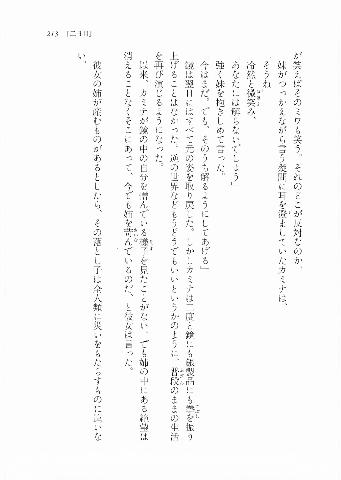 213　[二十日]
が笑えばそのミワも笑う。それのどこが反対なのか。
妹がつっかえながら言う疑問に耳を澄ましていたカミナは、
そうね
冷然と微笑み、
あなたには解らないでしょう
強く妹を抱きしめて言った。
「今はまだ。でも、そのうち解るようにしてあげる」
鏡は翌日にはすべて元の姿を取り戻した。しかしカミナは二度と鏡にも銀製品にも拳を振り
上げることはなかった。逆の世界などもうどうでもいいというかのように、普段のままの生活
を再び演じるようになった。
以来、カミナが鏡の中の自分を憎んでいる様子を見たことがない。でも姉の中にある絶望は
消えることなくそこにあって、今でも姉を苛んでいるのだ、と彼女は言った。
彼女の姉が産むものがあるとしたら、その落とし子は全人類に災いをもたらすものに違いな
い。